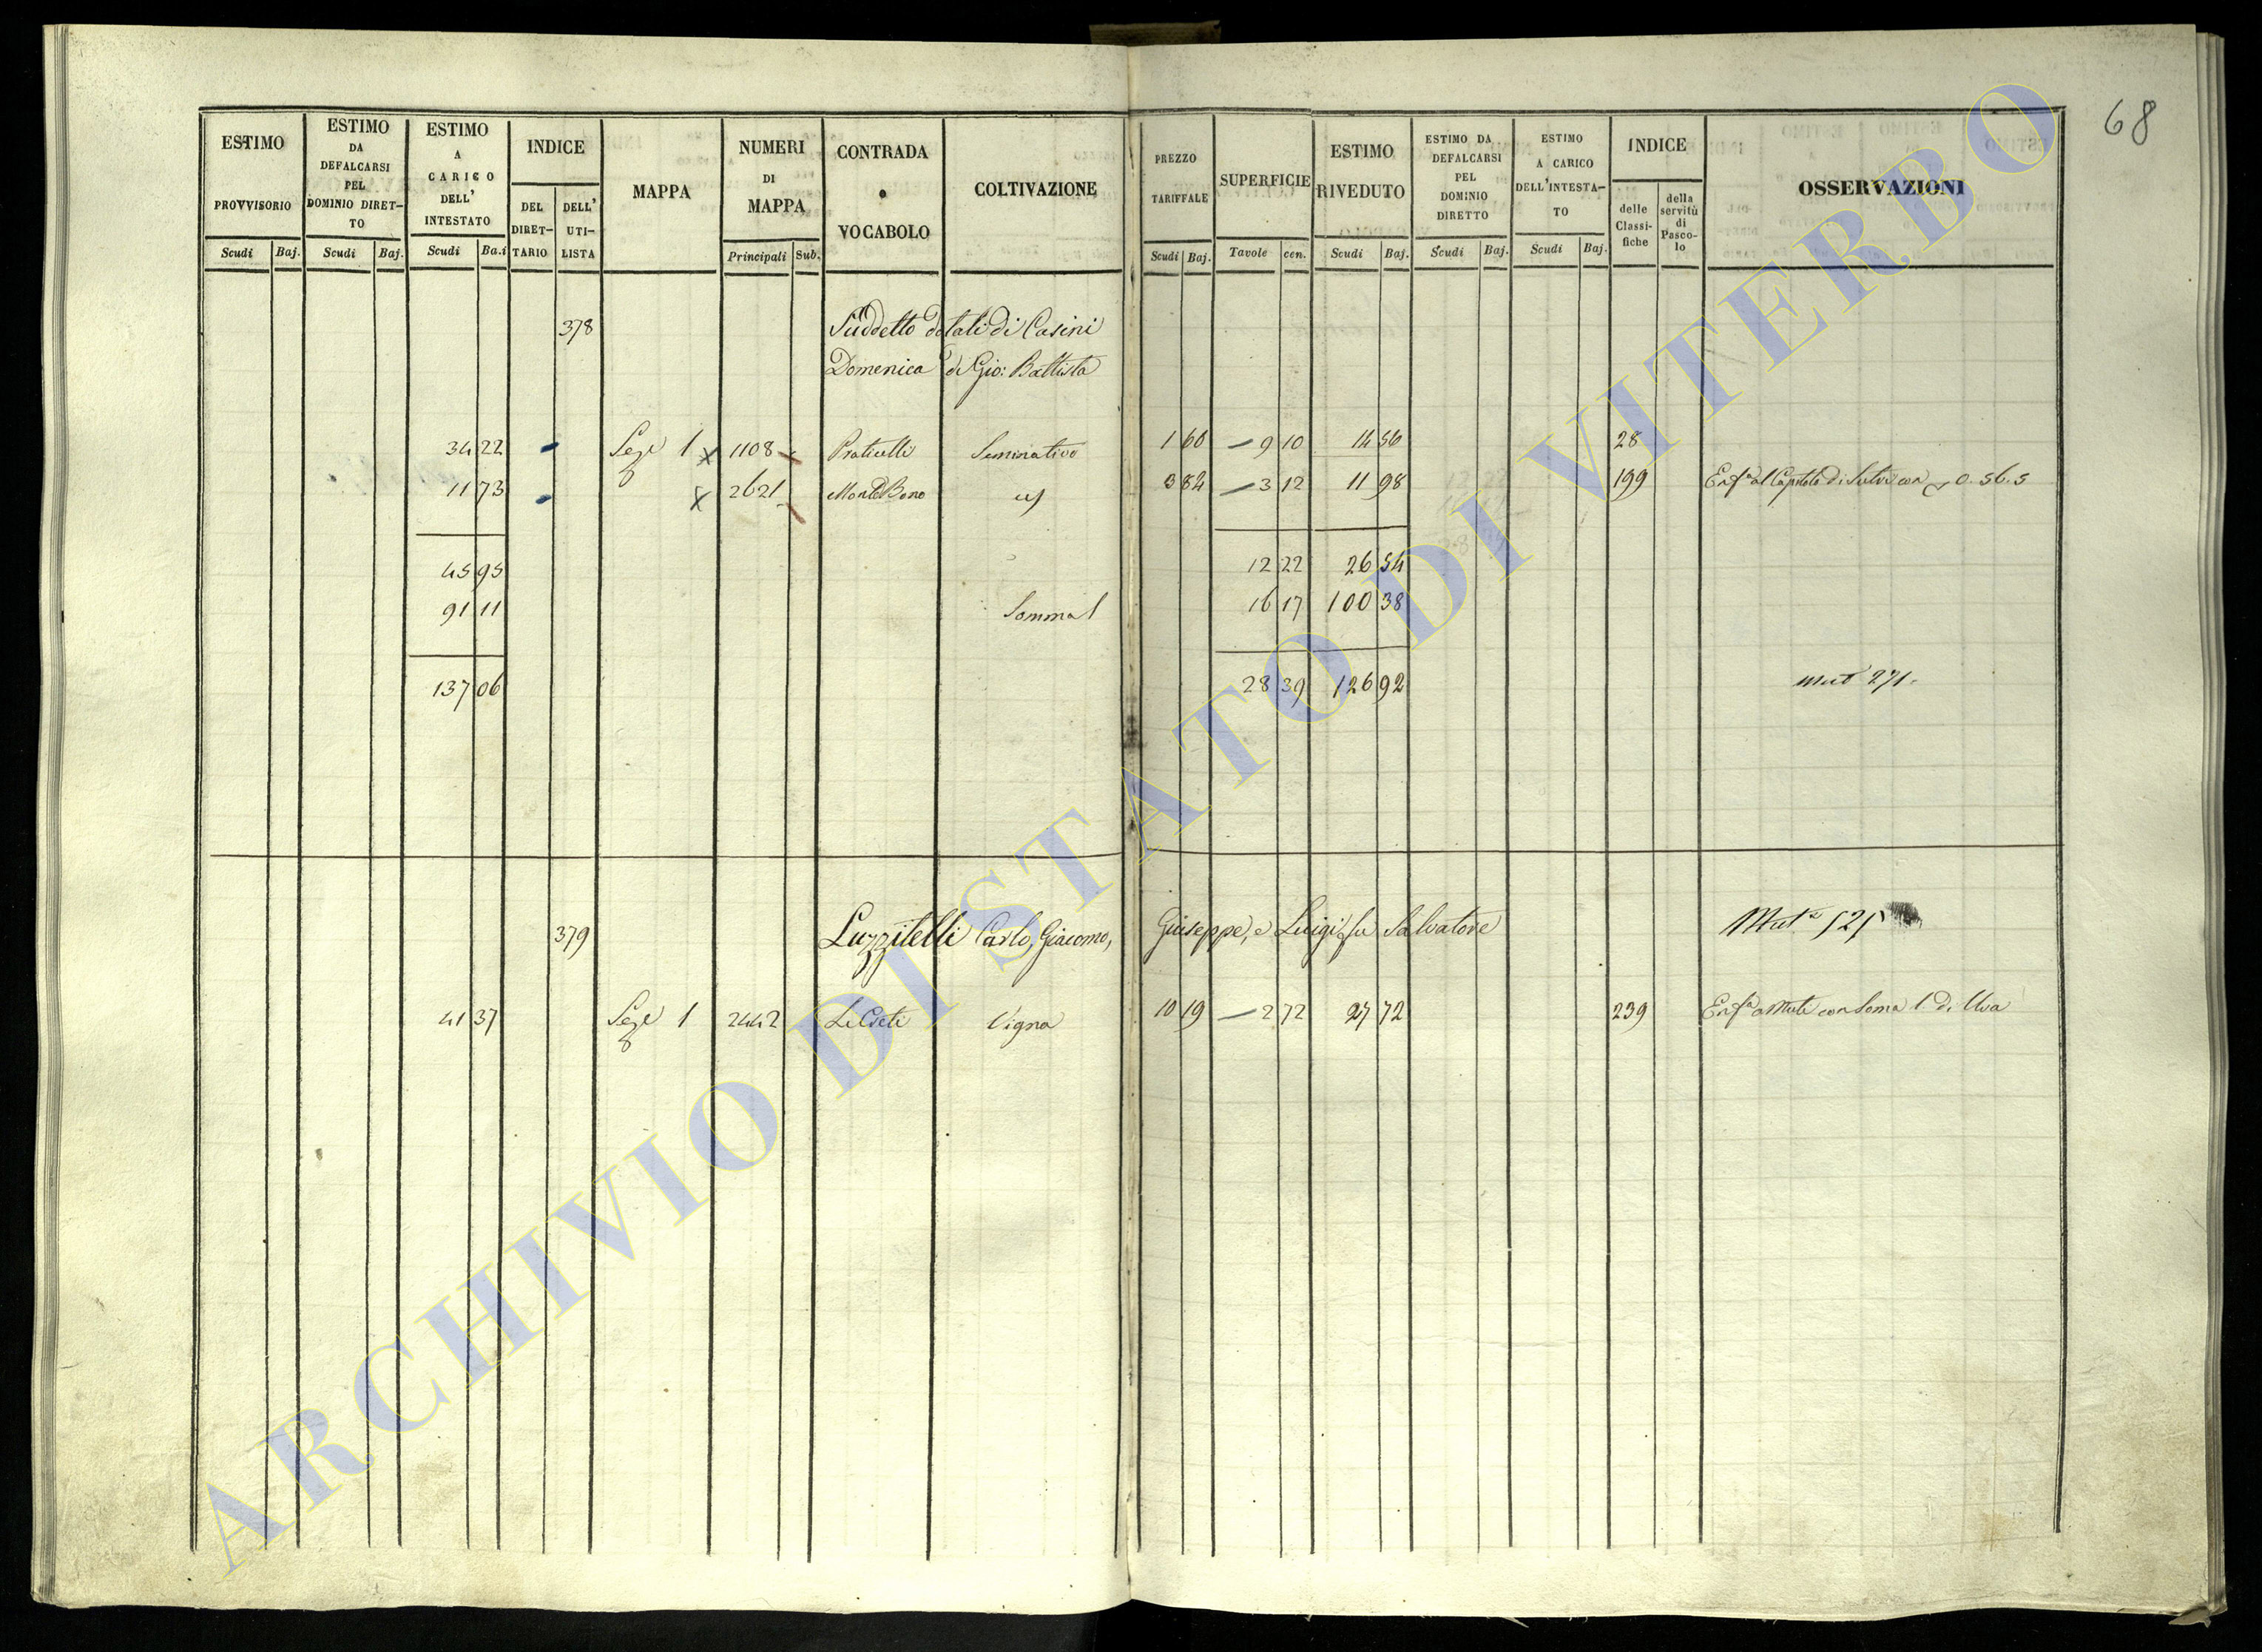 68
ESTIMO PROVVISORIO
ESTIMO DA DEFALCARSI PEL DOMINIO DIRET-TO
ESTIMO A CARICO DELL' INTESTATO
INDICE
DEL DIRET-TARIO
DELL' UTI-LISTA
MAPPA
NUMERI DI MAPPA
CONTRADA o VOCABOLO
COLTIVAZIONE
PREZZO TARIFFALE
SUPERFICIE
ESTIMO RIVEDUTO
ESTIMO DA DEFALCARSI PEL DOMINIO DIRETTO
ESTIMO A CARICO DELL'INTESTA-TO
INDICE
delle Classi-fiche
della servitù di Pasco-lo
OSSERVAZIONI
Scudi Baj. Scudi Baj. Scudi Ba.i Principali Sub. Scudi Baj. Tavole cen. Scudi Baj. Scudi Baj. Scudi Baj.
378 Suddetto dotali di Casini
Domenica di Gio: Battista
34 22 Seze 1 1108 Praticelli Seminativo 1 60 9 10 14 56 28
11 73 2621 Monte Bono 3 84 3 12 11 98 199 Enfa al Capitolo di Sutri con 0. 56. 5
45 95 12 22 26 54
91 11 Somma 16 17 100 38
137 06 28 39 126 92 Mut 271.
379 Luzzitelli Carlo, Giacomo, Giuseppe, e Luigi fu Salvatore Muta 525
41 37 Seze 1 2442 Le Crete Vigna 10 19 2 72 27 72 239 Enfa a Muti con Soma 1 di Uva
ARCHIVIO DI STATO DI VITERBO